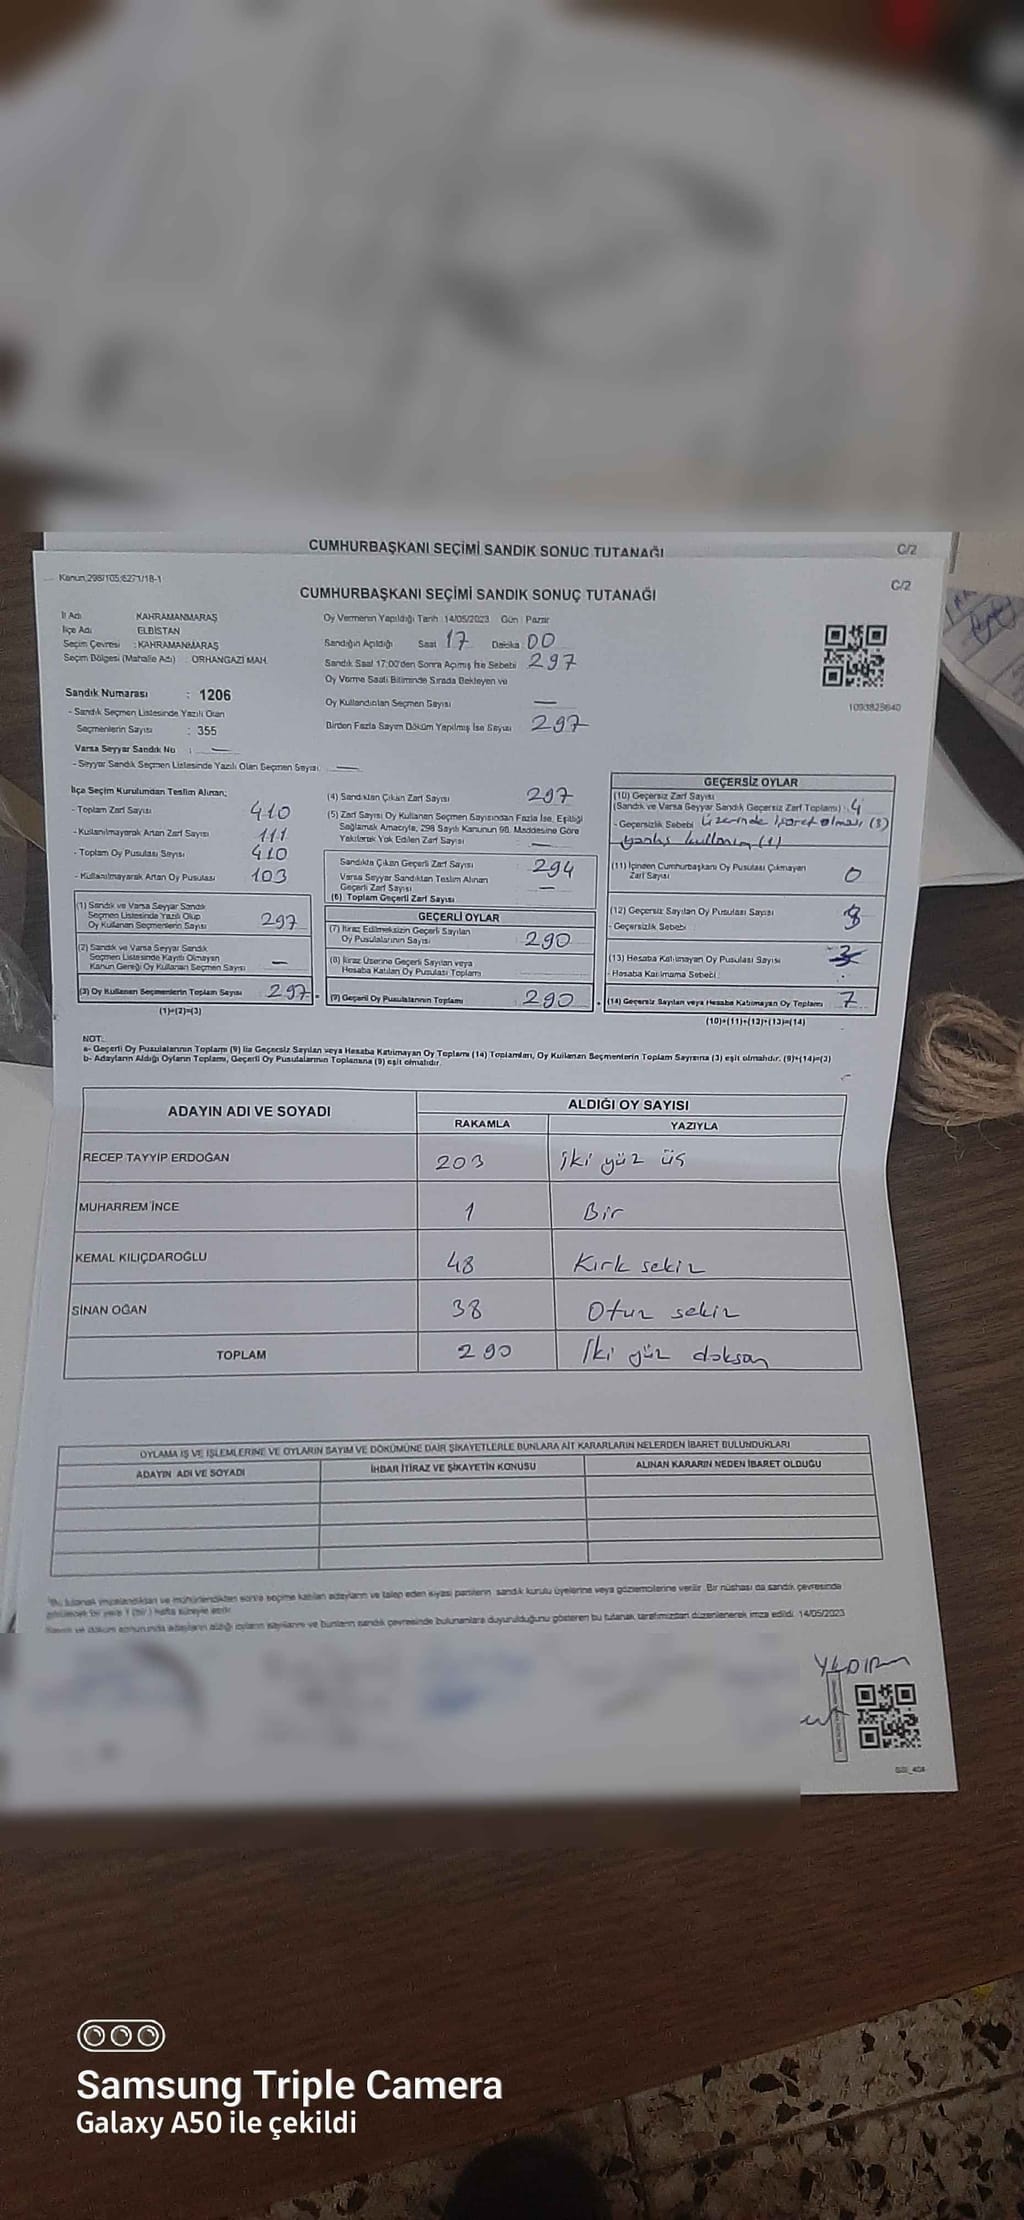 CUMHURBAŞKANI SEÇİMİ SANDIK SONUÇ TUTANAĞI
C/2
Kanun 298/105,6271/18-1
C/2
CUMHURBAŞKANI SEÇİMİ SANDIK SONUÇ TUTANAĞI
İl Adı KAHRAMANMARAŞ
İlçe Adı ELBİSTAN
Seçim Çevresi : KAHRAMANMARAŞ
Seçim Bölgesi (Mahalle Adı) : ORHANGAZİ MAH.
Sandık Numarası : 1206
- Sandık Seçmen Listesinde Yazılı Olan
Seçmenlerin Sayısı : 355
Varsa Seyyar Sandık No : —
- Seyyar Sandık Seçmen Listesinde Yazılı Olan Seçmen Sayısı: —
Oy Vermenin Yapıldığı Tarih : 14/05/2023 Gün : Pazar
Sandığın Açıldığı Saat 17 Dakika 00
Sandık Saat 17:00'den Sonra Açılmış İse Sebebi 297
Oy Verme Saati Bitiminde Sırada Bekleyen ve
Oy Kullandırılan Seçmen Sayısı —
Birden Fazla Sayım Döküm Yapılmış İse Sayısı 297
1093825640
İlçe Seçim Kurulundan Teslim Alınan;
- Toplam Zarf Sayısı 410
- Kullanılmayarak Artan Zarf Sayısı 111
- Toplam Oy Pusulası Sayısı 410
- Kullanılmayarak Artan Oy Pusulası 103
(1) Sandık ve Varsa Seyyar Sandık
Seçmen Listesinde Yazılı Olup
Oy Kullanan Seçmenlerin Sayısı 297
(2) Sandık ve Varsa Seyyar Sandık
Seçmen Listesinde Kayıtlı Olmayan
Kanun Gereği Oy Kullanan Seçmen Sayısı —
(3) Oy Kullanan Seçmenlerin Toplam Sayısı 297
(1)+(2)=(3)
(4) Sandıktan Çıkan Zarf Sayısı 297
(5) Zarf Sayısı Oy Kullanan Seçmen Sayısından Fazla İse, Eşitliği
Sağlamak Amacıyla, 298 Sayılı Kanunun 98. Maddesine Göre
Yakılarak Yok Edilen Zarf Sayısı —
Sandıkta Çıkan Geçerli Zarf Sayısı 294
Varsa Seyyar Sandıktan Teslim Alınan
Geçerli Zarf Sayısı —
(6) Toplam Geçerli Zarf Sayısı
GEÇERLİ OYLAR
(7) İtiraz Edilmeksizin Geçerli Sayılan
Oy Pusulalarının Sayısı 290
(8) İtiraz Üzerine Geçerli Sayılan veya
Hesaba Katılan Oy Pusulası Toplamı
(9) Geçerli Oy Pusulalarının Toplamı 290
GEÇERSİZ OYLAR
(10) Geçersiz Zarf Sayısı
(Sandık ve Varsa Seyyar Sandık Geçersiz Zarf Toplamı) : 4
- Geçersizlik Sebebi üzerinde işaret olması (3)
yanlış kullanım (1)
(11) İçinden Cumhurbaşkanı Oy Pusulası Çıkmayan
Zarf Sayısı 0
(12) Geçersiz Sayılan Oy Pusulası Sayısı
- Geçersizlik Sebebi
(13) Hesaba Katılmayan Oy Pusulası Sayısı
- Hesaba Katılmama Sebebi :
(14) Geçersiz Sayılan veya Hesaba Katılmayan Oy Toplamı 7
(10)+(11)+(12)+(13)=(14)
NOT:
a- Geçerli Oy Pusulalarının Toplamı (9) ile Geçersiz Sayılan veya Hesaba Katılmayan Oy Toplamı (14) Toplamları, Oy Kullanan Seçmenlerin Toplam Sayısına (3) eşit olmalıdır. (9)+(14)=(3)
b- Adayların Aldığı Oyların Toplamı, Geçerli Oy Pusulalarının Toplamına (9) eşit olmalıdır.
ADAYIN ADI VE SOYADI
ALDIĞI OY SAYISI
RAKAMLA YAZIYLA
RECEP TAYYİP ERDOĞAN 203 iki yüz üç
MUHARREM İNCE 1 Bir
KEMAL KILIÇDAROĞLU 48 Kırk sekiz
SİNAN OĞAN 38 Otuz sekiz
TOPLAM 290 İki yüz doksan
OYLAMA İŞ VE İŞLEMLERİNE VE OYLARIN SAYIM VE DÖKÜMÜNE DAİR ŞİKAYETLERLE BUNLARA AİT KARARLARIN NELERDEN İBARET BULUNDUKLARI
ADAYIN ADI VE SOYADI İHBAR İTİRAZ VE ŞİKAYETİN KONUSU ALINAN KARARIN NEDEN İBARET OLDUĞU
Bu tutanak imzalandıktan ve mühürlendikten sonra seçime katılan adayların ve talep eden siyasi partilerin sandık kurulu üyelerine veya gözlemcilerine verilir. Bir nüshası da sandık çevresinde
bir yere 1 (bir) hafta süreyle asılır.
Sayım ve döküm sonucunda adayların aldığı oyların sayılarını ve bunların sandık çevresinde bulunanlara duyurulduğunu gösteren bu tutanak tarafımızdan düzenlenerek imza edildi. 14/05/2023
YILDIRIM
Samsung Triple Camera
Galaxy A50 ile çekildi